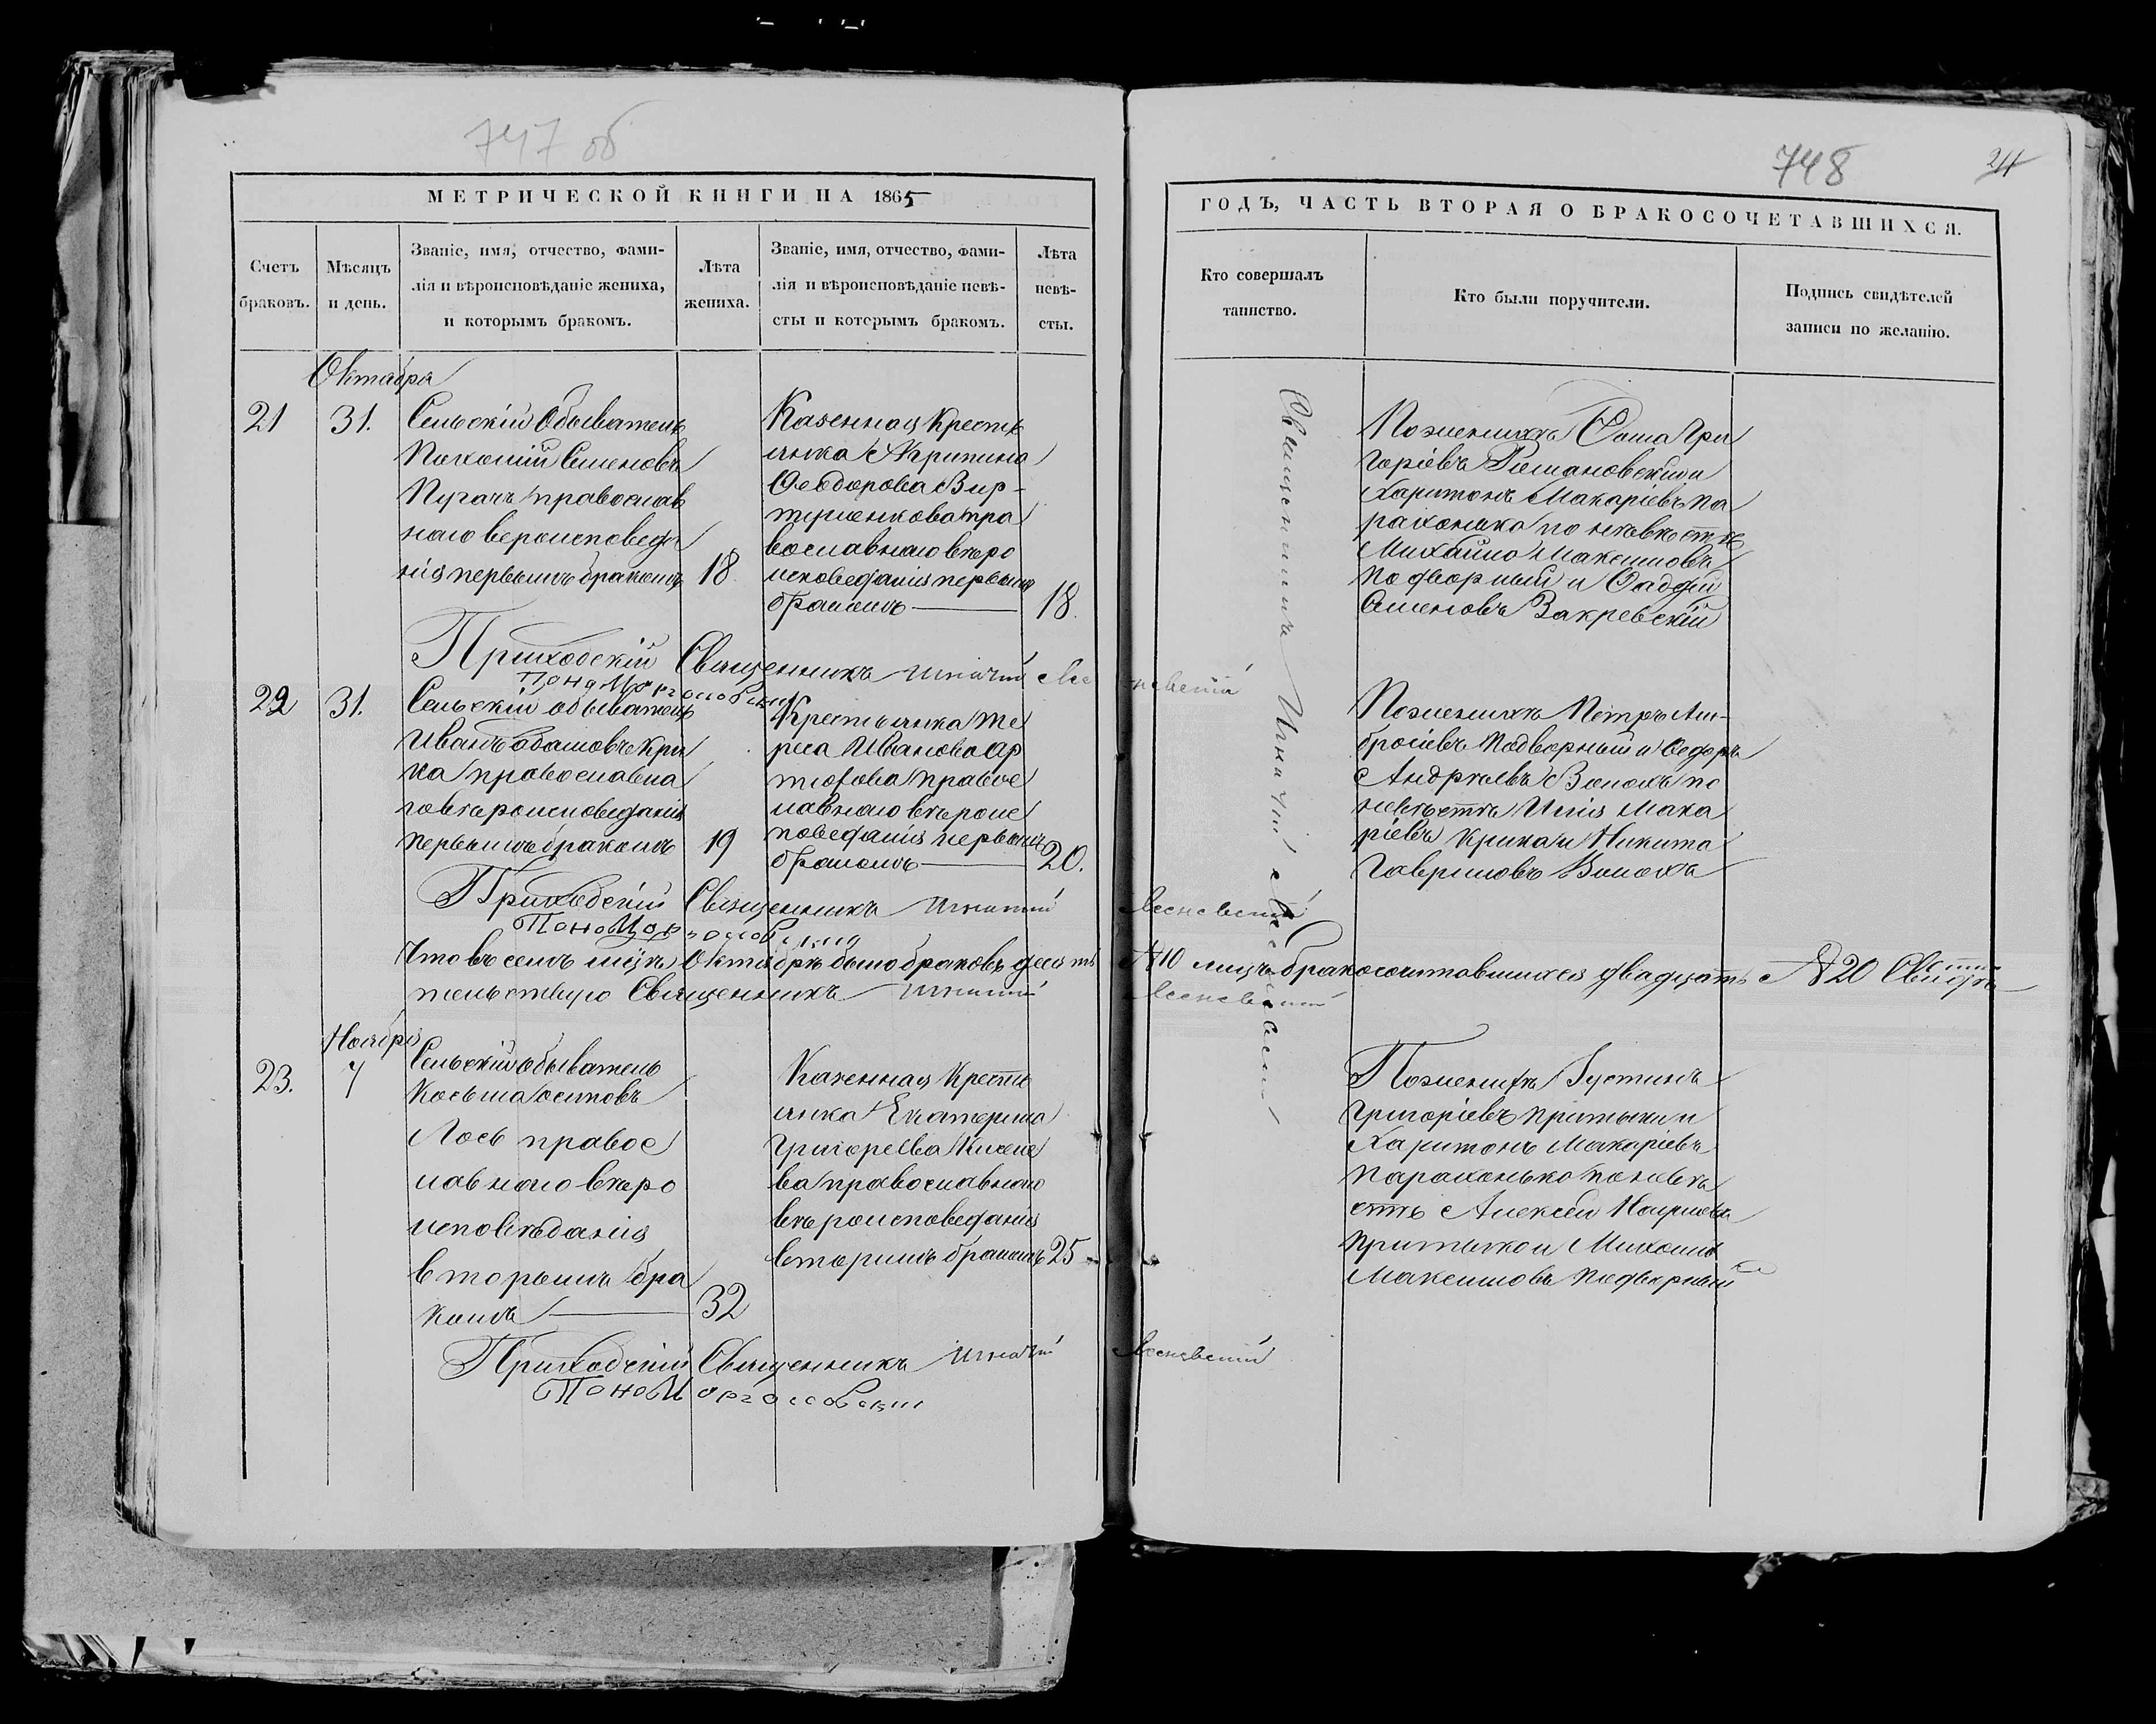 747 об
МЕТРИЧЕСКОЙ КНИГИ НА 1865
Счетъ браковъ.
Мѣсяцъ и день.
Званіе, имя, отчество, фами-
лія и вѣроисповѣданіе жениха,
и которымъ бракомъ.
Лѣта жениха.
Званіе, имя, отчество, фами-
лія и вѣроисповѣданіе невѣ-
сты и которымъ бракомъ.
Лѣта невѣ-
сты.
Октября
21
31.
Сельскій Обыватель
Пахомій Семеновъ
Пугачъ православ
наго вероисповеда
нія первымъ бракомъ
18.
Казенная Крестья
янка Акрипина
Феодорова Вир-
тушенкова пра
вославнаго вѣро
исповеданія первымъ
бракомъ
18.
Приходскій Священникъ Игнатій Лесневскій
Поно
22
31.
Сельскій обыватель
Иванъ Адамовъ Кри
ка православна
го вѣроисповеданія
первымъ бракомъ
19
Крестьянка Те
реса Иванова Ар
тюхова правос
лавнаго вѣроис
поведанія первымъ
бракомъ
20.
Приходскій Священникъ Игнатій Лесневскій
Поно
Что въ семъ м҃цѣ Октябрѣ было браковъ десять №10 лицъ бракосочитавшихся двадцать №20 Свидѣ
тельствую Священникъ Игнатій Лесневскій
Ноября
23.
7
Сельскій обыватель
Косьма осиповъ
Лось правос
лавнаго вѣро
исповѣданія
вторымъ бра
комъ
32
Казенная Крестья
янка Екатерина
Григорева
ва православнаго
вѣроисповеданія
вторымъ бракомъ
25
Приходскій Священникъ Игнатій Лесневскій
Поно
748
24
ГОДЪ, ЧАСТЬ ВТОРАЯ О БРАКОСОЧЕТАВШИХСЯ.
Кто совершалъ
таинство.
Кто были поручители.
Подпись свидѣтелей
записи по желанію.
Священникъ Игнатій Лесневскій
По женихѣ Фома Гри
горіевъ Романовскій и
Харитонъ Макаріевъ Па
рахонько по невѣстѣ
Михайло Максимовъ
Подворный и Фаддей
Семеновъ Закревскій
По женихѣ Петръ Ам-
вросіевъ Подворный и Федоръ
Андрѣевъ Волохъ по
невѣстѣ Илія Мака
ріевъ Крика и Никита
Гавриловъ Волоха
По женихѣ Іустинъ
Григоріевъ Притыки и
Харитонъ Макаріевъ
Парахонько по невѣ
стѣ Алексѣй
Притыко и Михаилъ
Максимовъ Подворный